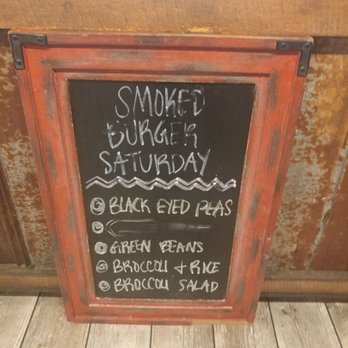 SMOKED
BURGER
SATURDAY
BLACK EYED PEAS
GREEN BEANS
BROCCOLI + RICE
BROCCOLI SALAD